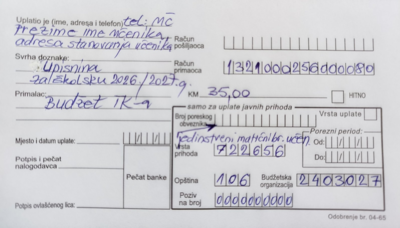 Uplatio je (ime, adresa i telefon) tel: MČ
Prezime ime učenika,
adresa stanovanja učenika
Svrha doznake:
Upisnina
za školsku 2026/2027.g.
Primalac:
Budžet TK-a
Mjesto i datum uplate:
Potpis i pečat
nalogodavca
Pečat banke
Potpis ovlaščenog lica:
Račun
pošiljaoca
Račun
primaoca
KM 35,00
HITNO
samo za uplate javnih prihoda
Broj poreskog
obveznika
Jedinstveni matični br. učen.
Vrsta
prihoda
722656
Općina
106
Poziv
na broj
0000000000
Vrsta uplate
Porezni period:
Od:
Do:
Budžetska
organizacija
2403027
Odobrenje br. 04-65